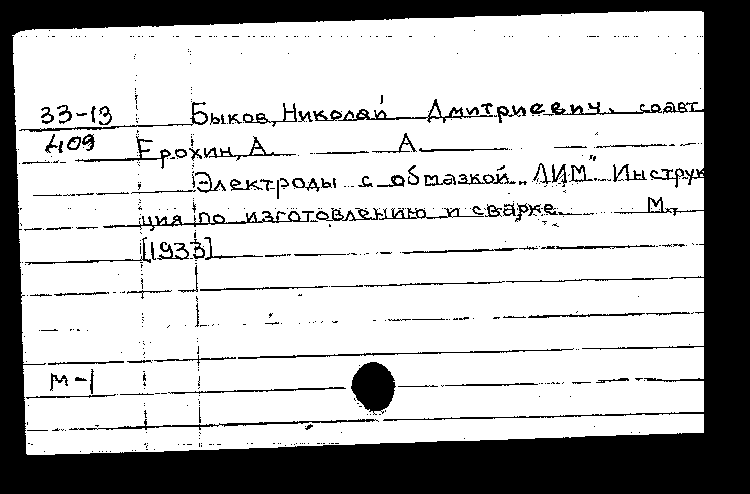 33-13 Быков, Николай Дмитриевич. соавт
409 Ерохин, А. А.
Электроды с обмазкой „ЛИМ". Инструк
ция по изготовлению и сварке. М.,
[1933]
М-1